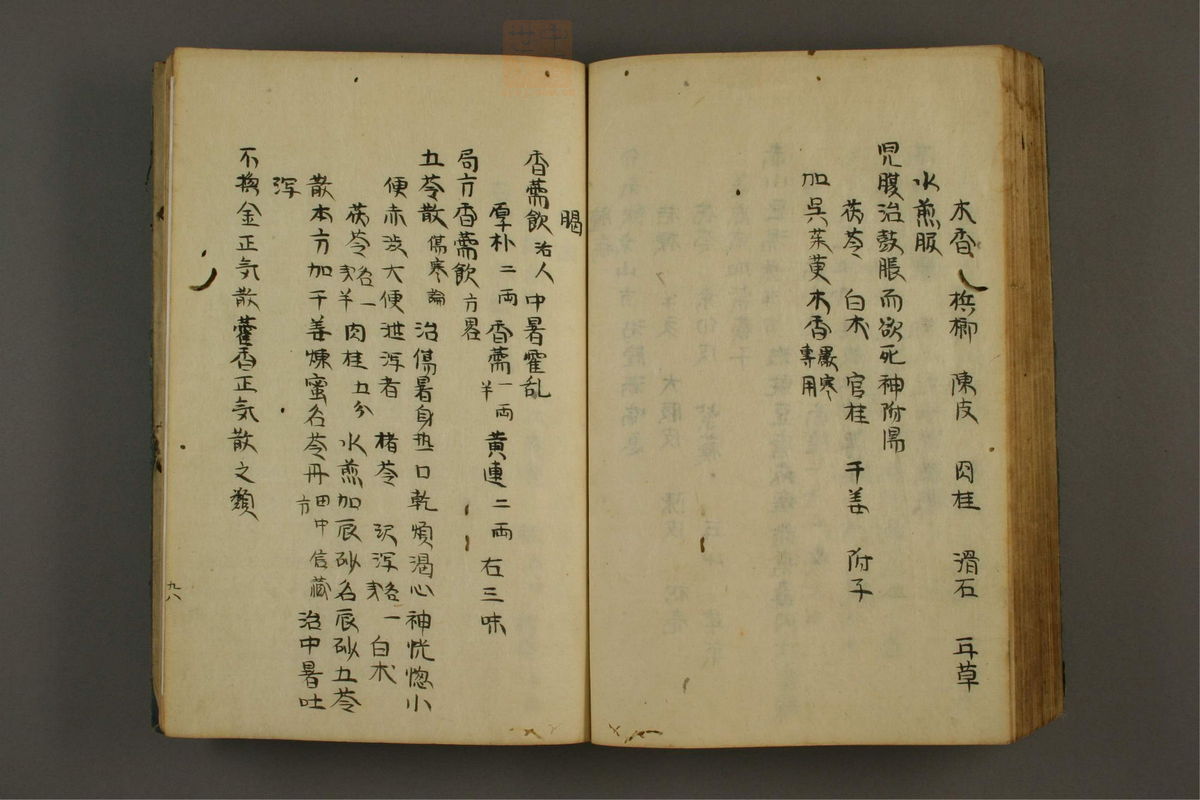 木香 梹榔 陳皮 肉桂 滑石 耳草
水煎服
児腹治鼓脹而欲死神附湯
茯苓 白朮 官桂 干姜 附子
加呉茱萸木香嚴寒専用
暍
香薷飲治人中暑霍乱
厚朴二両 香薷一両半 黄連二両 右三味
局方香薷飲方畧
五苓散傷寒論 治傷暑身热口乾煩渴心神恍惚小
便赤渋大便泄泻者 楮苓 沢泻各一匁 白朮
茯苓各一匁半 肉桂五分 水煎加辰砂名辰砂五苓
散本方加干姜煉蜜名苓丹田中信蔵方 治中暑吐
泻
不換金正気散藿香正気散之類
九八